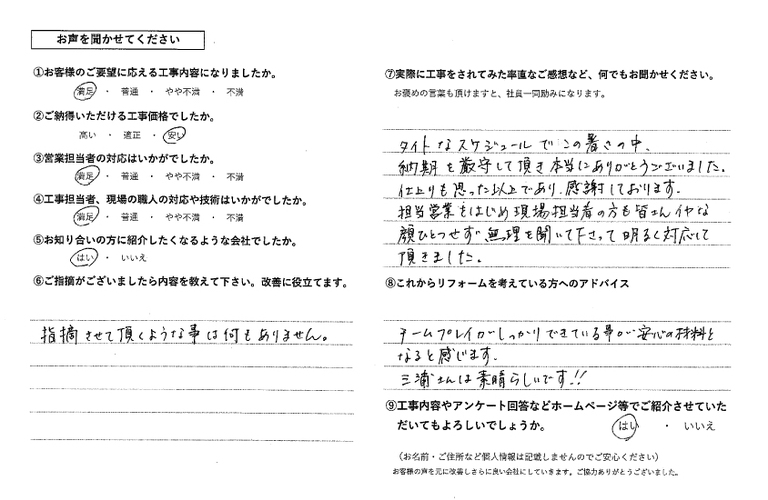 お声を聞かせてください
①お客様のご要望に応える工事内容になりましたか。
満足 ・ 普通 ・ やや不満 ・ 不満
②ご納得いただける工事価格でしたか。
高い ・ 適正 ・ 安い
③営業担当者の対応はいかがでしたか。
満足 ・ 普通 ・ やや不満 ・ 不満
④工事担当者、現場の職人の対応や技術はいかがでしたか。
満足 ・ 普通 ・ やや不満 ・ 不満
⑤お知り合いの方に紹介したくなるような会社でしたか。
はい ・ いいえ
⑥ご指摘がございましたら内容を教えて下さい。改善に役立てます。
指摘させて頂くような事は何もありません。
⑦実際に工事をされてみた率直なご感想など、何でもお聞かせください。
お褒めの言葉も頂けますと、社員一同励みになります。
タイトなスケジュールでこの暑さの中、
納期を厳守して頂き本当にありがとうございました。
仕上りも思った以上であり、感謝しております。
担当営業をはじめ現場担当者の方も皆さんイヤな
顔ひとつせず無理を聞いて下さって明るく対応して
頂きました。
⑧これからリフォームを考えている方へのアドバイス
チームプレイがしっかりできている事が安心の材料と
なると感じます。
三浦さんは素晴らしいです!!
⑨工事内容やアンケート回答などホームページ等でご紹介させていた
だいてもよろしいでしょうか。 はい ・ いいえ
（お名前・ご住所など個人情報は記載しませんのでご安心ください）
お客様の声を元に改善しさらに良い会社にしていきます。ご協力ありがとうございました。